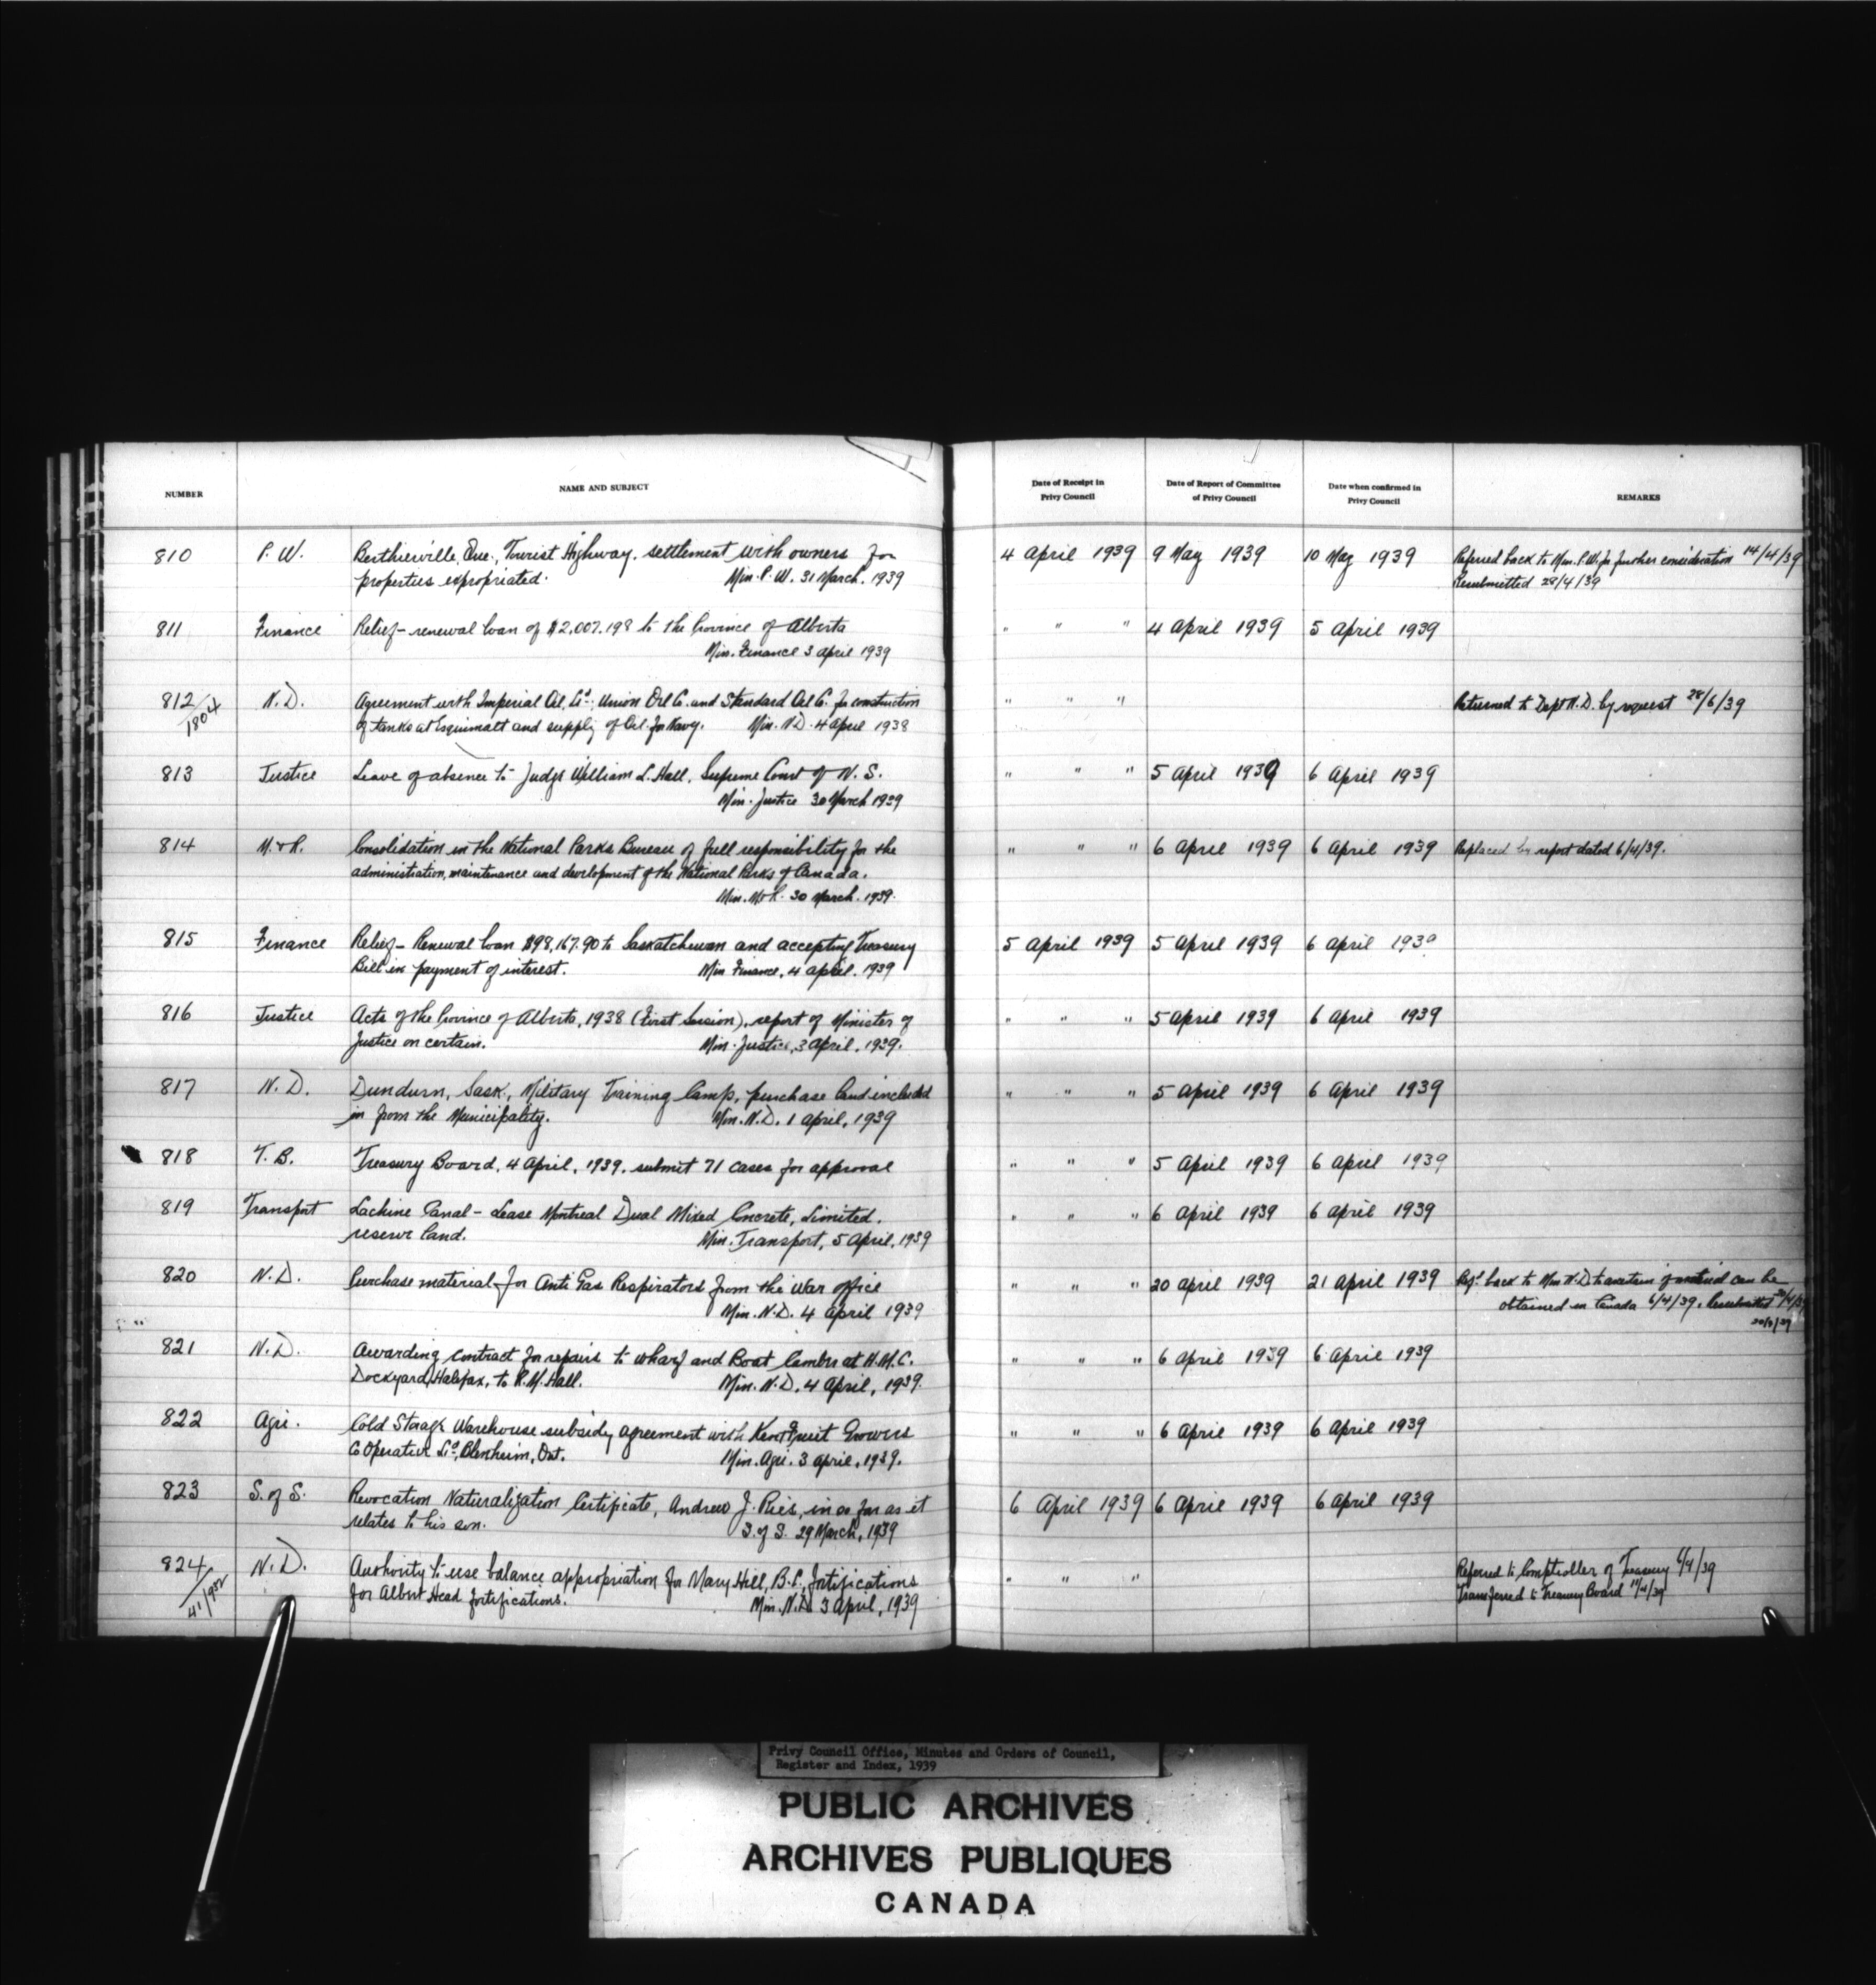 NUMBER NAME AND SUBJECT Date of Receipt in Privy Council Date of Report of Committee of Privy Council Date when confirmed in Privy Council REMARKS
810 P. W. Berthierville, Que., Tourist Highway, settlement with owners for 4 April 1939 9 May 1939 10 May 1939 Referred back to Min. P.W. for further consideration 14/4/39
properties expropriated. Min. P. W. 31 March. 1939 Resubmitted 28/4/39
811 Finance Relief - renewal loan of $2,007,198 to the Province of Alberta " " " 4 April 1939 5 April 1939
Min. Finance 3 April 1939
812/1804 N. D. Agreement with Imperial Oil, Ld.; Union Oil Co. and Standard Oil Co. for construction " " " Returned to Dept N. D. by request 28/6/39
of tanks at Esquimalt and supply of Oil for Navy. Min. N.D. 4 April 1938
813 Justice Leave of absence to Judge William L. Hall, Supreme Court of N. S. " " " 5 April 1939 6 April 1939
Min. Justice 30 March 1939
814 M. & R. Consolidation in the National Parks Bureau of full responsibility for the " " " 6 April 1939 6 April 1939 Replaced by report dated 6/4/39.
administration, maintenance and development of the National Parks of Canada.
Min. M & R. 30 March. 1939.
815 Finance Relief - Renewal loan $98,167.90 to Saskatchewan and accepting Treasury 5 April 1939 5 April 1939 6 April 1939
Bill in payment of interest. Min Finance, 4 April. 1939
816 Justice Acts of the Province of Alberta, 1938 (First Session), report of Minister of " " " 5 April 1939 6 April 1939
Justice on certain. Min. Justice, 3 April, 1939.
817 N. D. Dundurn, Sask., Military Training Camp, purchase land included " " " 5 April 1939 6 April 1939
in from the Municipality. Min. N. D. 1 April, 1939
818 T. B. Treasury Board, 4 April, 1939, submit 71 cases for approval " " " 5 April 1939 6 April 1939
819 Transport Lachine Canal - Lease Montreal Dual Mixed Concrete, Limited. " " " 6 April 1939 6 April 1939
reserve land. Min. Transport, 5 April, 1939
820 N. D. Purchase material for Anti Gas Respirators from the War office " " " 20 April 1939 21 April 1939 Refd. back to Min N.D. to ascertain if material can be
Min. N. D. 4 April 1939 obtained in Canada 6/4/39. Resubmitted
821 N. D. Awarding contract for repairs to wharf and Boat Camber at H. M. C. " " " 6 April 1939 6 April 1939
Dockyard, Halifax, to R. M. Hall. Min. N. D. 4 April, 1939.
822 Agri. Cold Storage Warehouse subsidy agreement with Kent Fruit Growers " " " 6 April 1939 6 April 1939
Co Operative Ld., Blenheim, Ont. Min. Agri. 3 April, 1939.
823 S. of S. Revocation Naturalization Certificate, Andrew J. Ries, in so far as it 6 April 1939 6 April 1939 6 April 1939
relates to his son. S. of S. 29 March, 1939
824 N. D. Authority to use balance appropriation for Mary Hill, B. C., fortifications " " " Referred to Comptroller of Treasury 6/4/39
for Albert Head fortifications. Min. N. D. 3 April, 1939 Transferred to Treasury Board 11/4/39
Privy Council Office, Minutes and Orders of Council,
Register and Index, 1939
PUBLIC ARCHIVES
ARCHIVES PUBLIQUES
CANADA